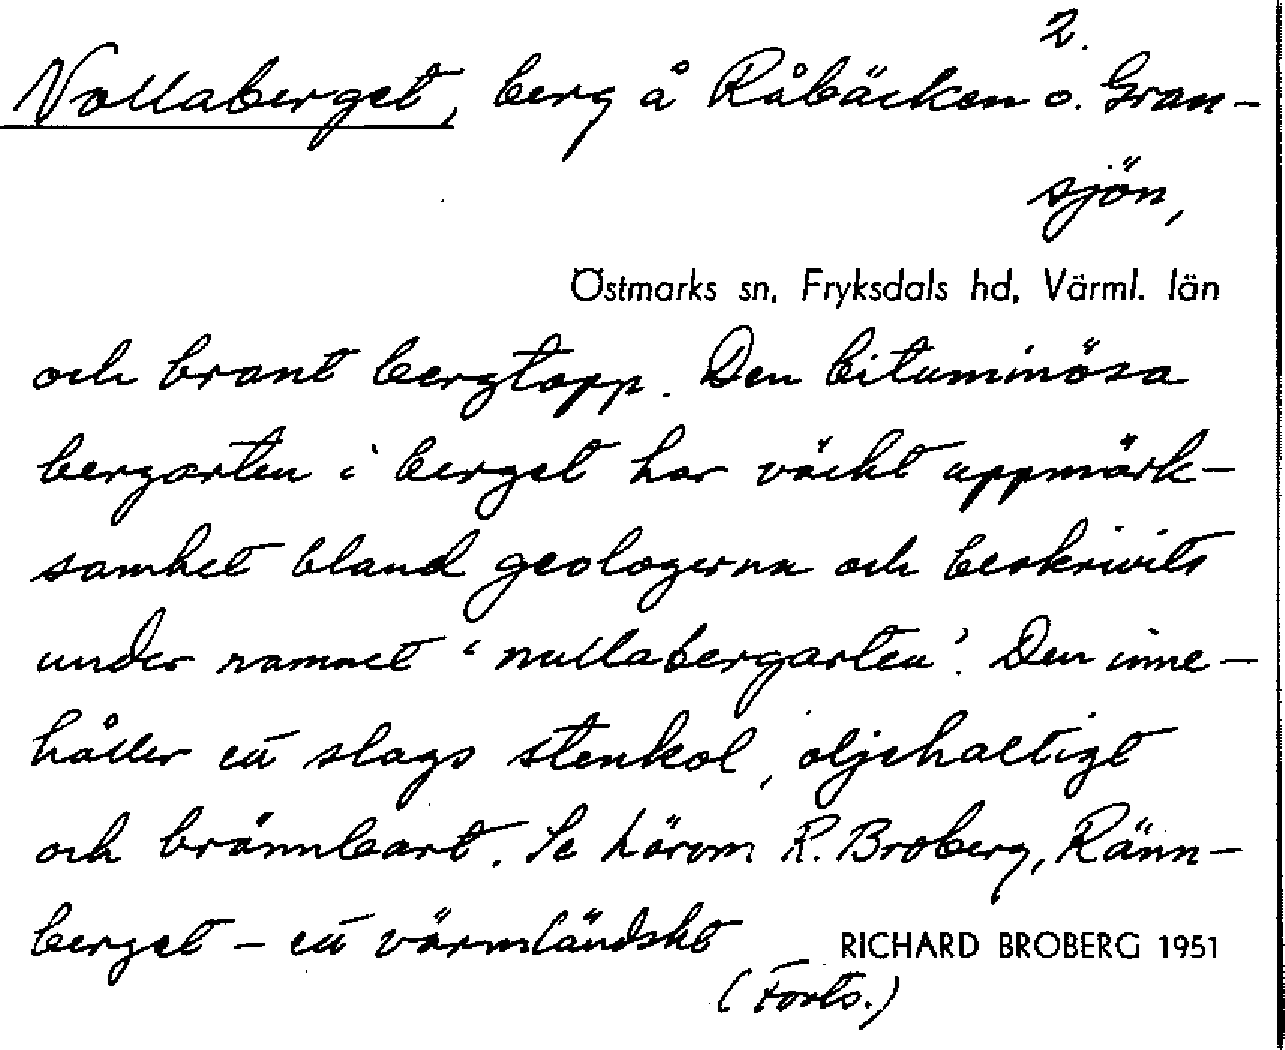 2.
Nollaberget, berg å Råbäcken o. Gran-
sjön,
Östmarks sn, Fryksdals hd, Värml. län
och brant bergtopp. Den bituminösa
bergarten i berget har väckt uppmärk-
samhet bland geologerna och beskrivits
under namnet 'nullabergarten'. Den inne-
håller ett slags stenkol, oljehaltigt
och brännbart. Se härom R. Broberg, Ränn-
berget – ett värmländskt
RICHARD BROBERG 1951
(Forts.)